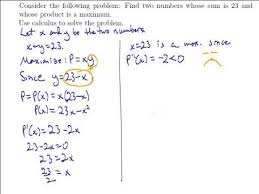 Consider the following problem: Find two numbers whose sum is 23 and
whose product is a maximum.
Use calculus to solve the problem.
Let x and y be the two numbers
x+y=23.
Maximize: P=xy
Since y=23-x
P=P(x)=x(23-x)
P(x)=23x-x²
P'(x)=23-2x
23-2x=0
23=2x
23/2=x
x=23 is a max. since
P''(x)=-2<0